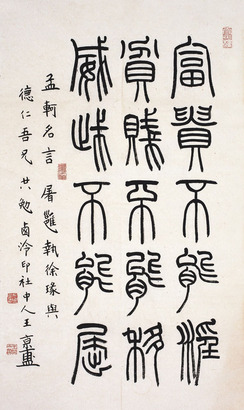 富貴不能淫
貧賤不能移
威武不能屈
孟軻名言 屠維執徐瑑與
德仁吾兄共勉 西泠印社中人王京